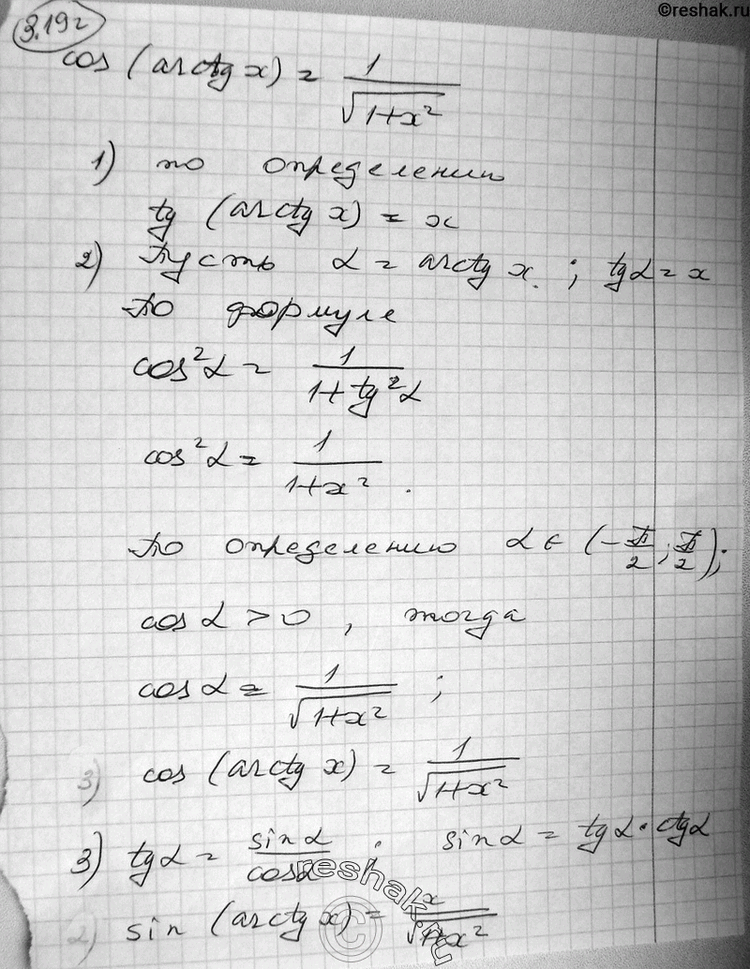 ©reshak.ru
3.19г
cos (arctg x) = 1/√(1+x²)
1) по определению
tg (arctg x) = x
2) Пусть α = arctg x ; tgα = x
По формуле
cos²α = 1/(1+tg²α)
cos²α = 1/(1+x²) .
По определению α ∈ (-π/2 ; π/2);
cosα > 0 , тогда
cosα = 1/√(1+x²) ;
3) cos (arctg x) = 1/√(1+x²)
3) tgα = sinα/cosα ; sinα = tgα · ctgα
2) sin (arctg x) = x/√(1+x²)
reshak.ru
©